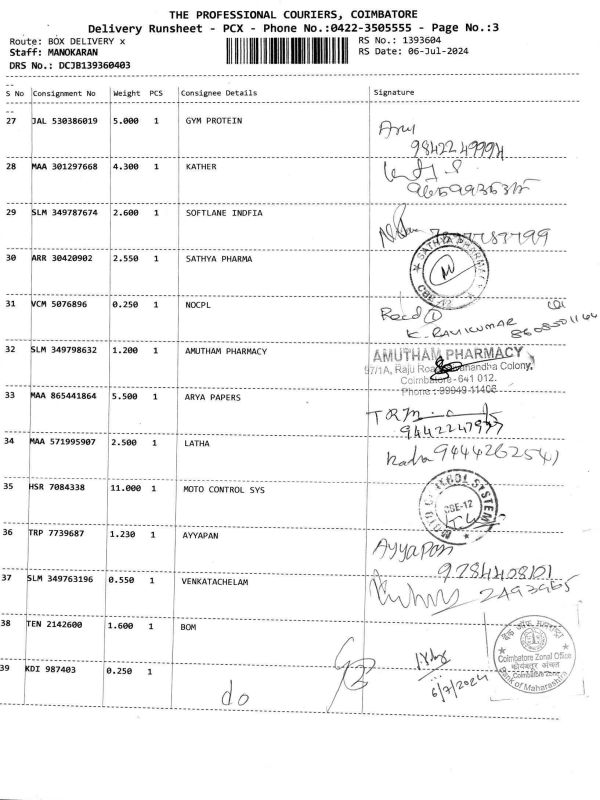 THE PROFESSIONAL COURIERS, COIMBATORE
Delivery Runsheet - PCX - Phone No.:0422-3505555 - Page No.:3
Route: BOX DELIVERY x RS No.: 1393604
Staff: MANOKARAN RS Date: 06-Jul-2024
DRS No.: DCJB139360403
S No Consignment No Weight PCS Consignee Details Signature
27 JAL 530386019 5.000 1 GYM PROTEIN
28 MAA 301297668 4.300 1 KATHER
29 SLM 349787674 2.600 1 SOFTLANE INDFIA
30 ARR 30420902 2.550 1 SATHYA PHARMA
SATHYA PHARMA
CBE-12
31 VCM 5076896 0.250 1 NOCPL
Recd
K. RAVIKUMAR
32 SLM 349798632 1.200 1 AMUTHAM PHARMACY
AMUTHAM PHARMACY
97/1A, Raju Colony,
Coimbatore-641 012.
Phone : 39949 11406
33 MAA 865441864 5.500 1 ARYA PAPERS
34 MAA 571995907 2.500 1 LATHA
35 HSR 7084338 11.000 1 MOTO CONTROL SYS
CBE-12
36 TRP 7739687 1.230 1 AYYAPAN
Ayyapan
37 SLM 349763196 0.550 1 VENKATACHELAM
38 TEN 2142600 1.600 1 BOM
Coimbatore Zonal Office
कोयंबत्तूर अंचल
Coimbatore Zone
Bank of Maharashtra
39 KDI 987403 0.250 1
do
6/7/2024